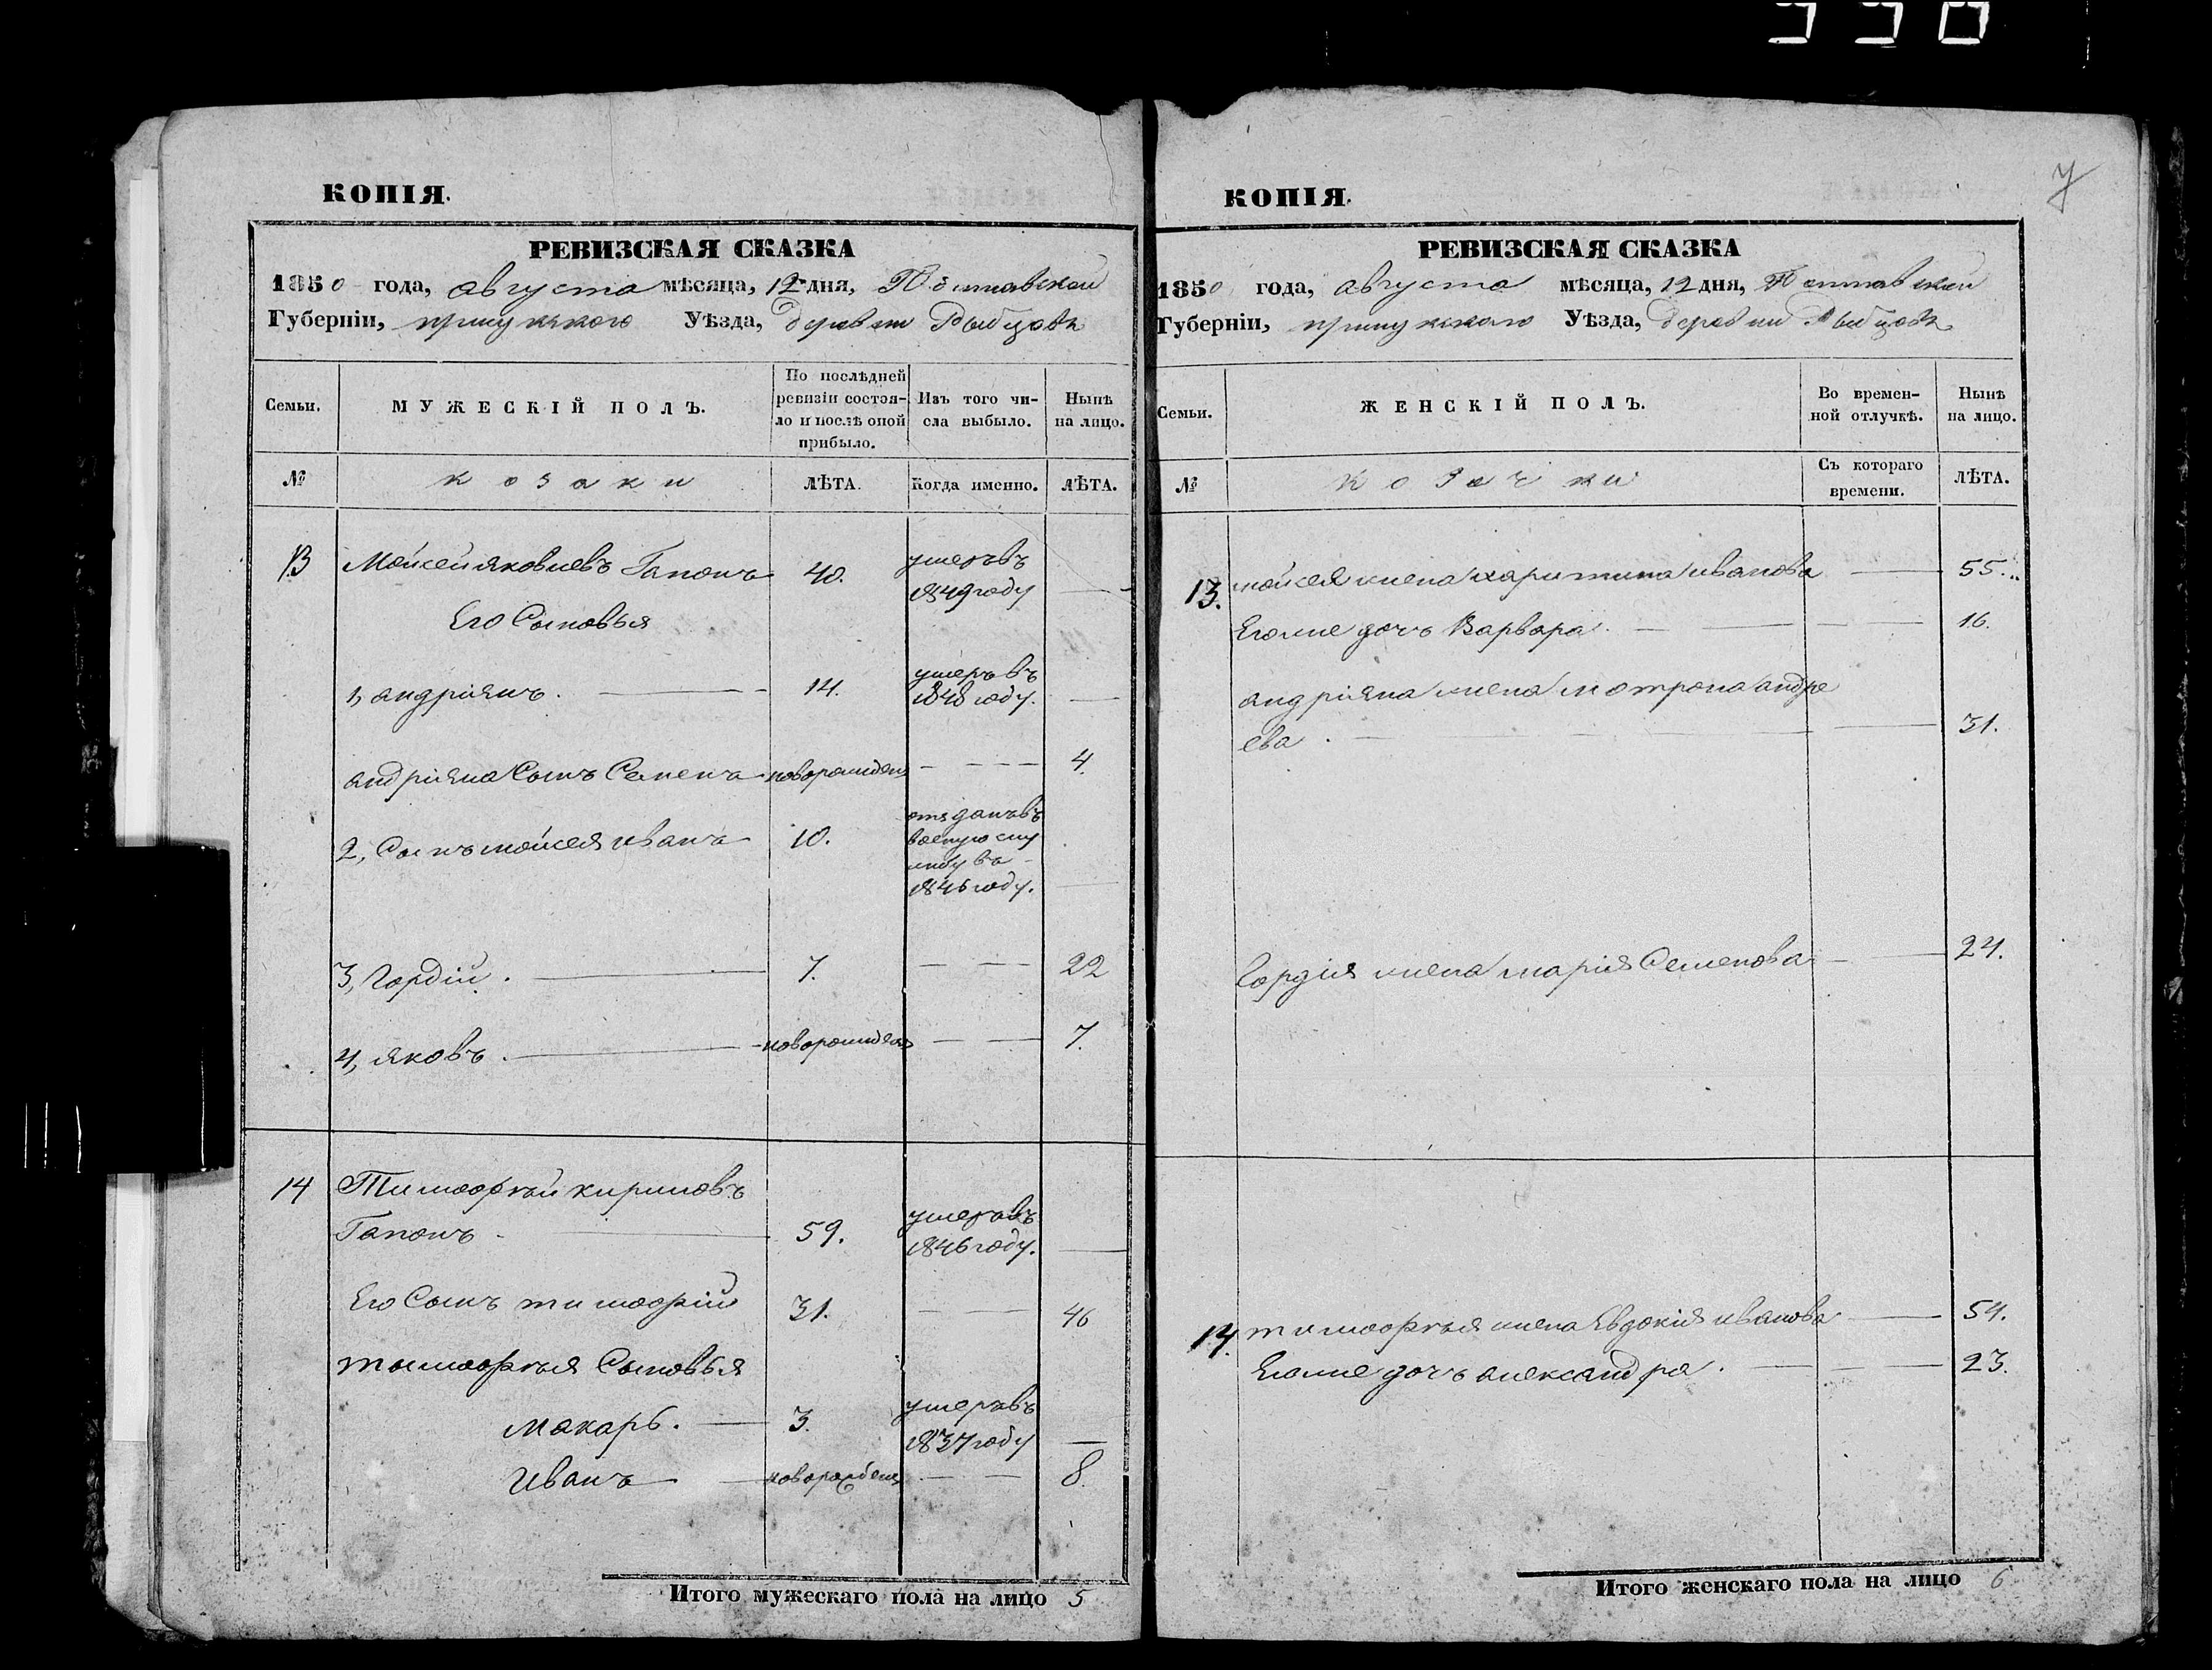 7
КОПІЯ.
РЕВИЗСКАЯ СКАЗКА
1850 года, августа мѣсяца, 12 дня, Полтавской
Губерніи, прилукского Уѣзда, деревни
Семьи.
МУЖЕСКІЙ ПОЛЪ.
По послѣдней
ревизіи состоя-
ло и послѣ оной
прибыло.
Изъ того чи-
сла выбыло.
Нынѣ
на лицо.
№
козаки
ЛѢТА.
Когда именно.
ЛѢТА.
13 Мойсей яковлевъ Гапонъ 40. умеръ въ
1849 году —
Его Сыновья
1, андріянъ. — 14. умеръ въ
1848 году. —
андріяна Сынъ Семенъ новорожден — 4.
2, Сынъ мойсея иванъ 10. отданъ въ
воепую слу
жбу въ
1846 году. —
3, Гордій. — 7. — 22
4, яковъ. — новорожден — 7.
14 Тимофѣй кириловъ
Гапонъ — 59. умеръ въ
1846 году. —
Его Сынъ тимофій 31. — 46
тимофѣя Сыновья
макаръ. — 3. умеръ въ
1837 году —
Иванъ — новорожден — 8.
Итого мужескаго пола на лицо 5
КОПІЯ.
РЕВИЗСКАЯ СКАЗКА
1850 года, августа мѣсяца, 12 дня, Полтавской
Губерніи, прилукского Уѣзда, деревни
Семьи.
ЖЕНСКІЙ ПОЛЪ.
Во времен-
ной отлучкѣ.
Нынѣ
на лицо.
№
козачки
Съ котораго
времени.
ЛѢТА.
13. мойсея жена харитина иванова — 55.
Егоже дочъ Варвара. — 16.
андріяна жена мотрона андре
ева. — 31.
Гордія жена марія Семенова — 24.
14. тимофѣя жена Явдокія иванова — 54.
Егоже дочъ александра. — 23.
Итого женскаго пола на лицо 6